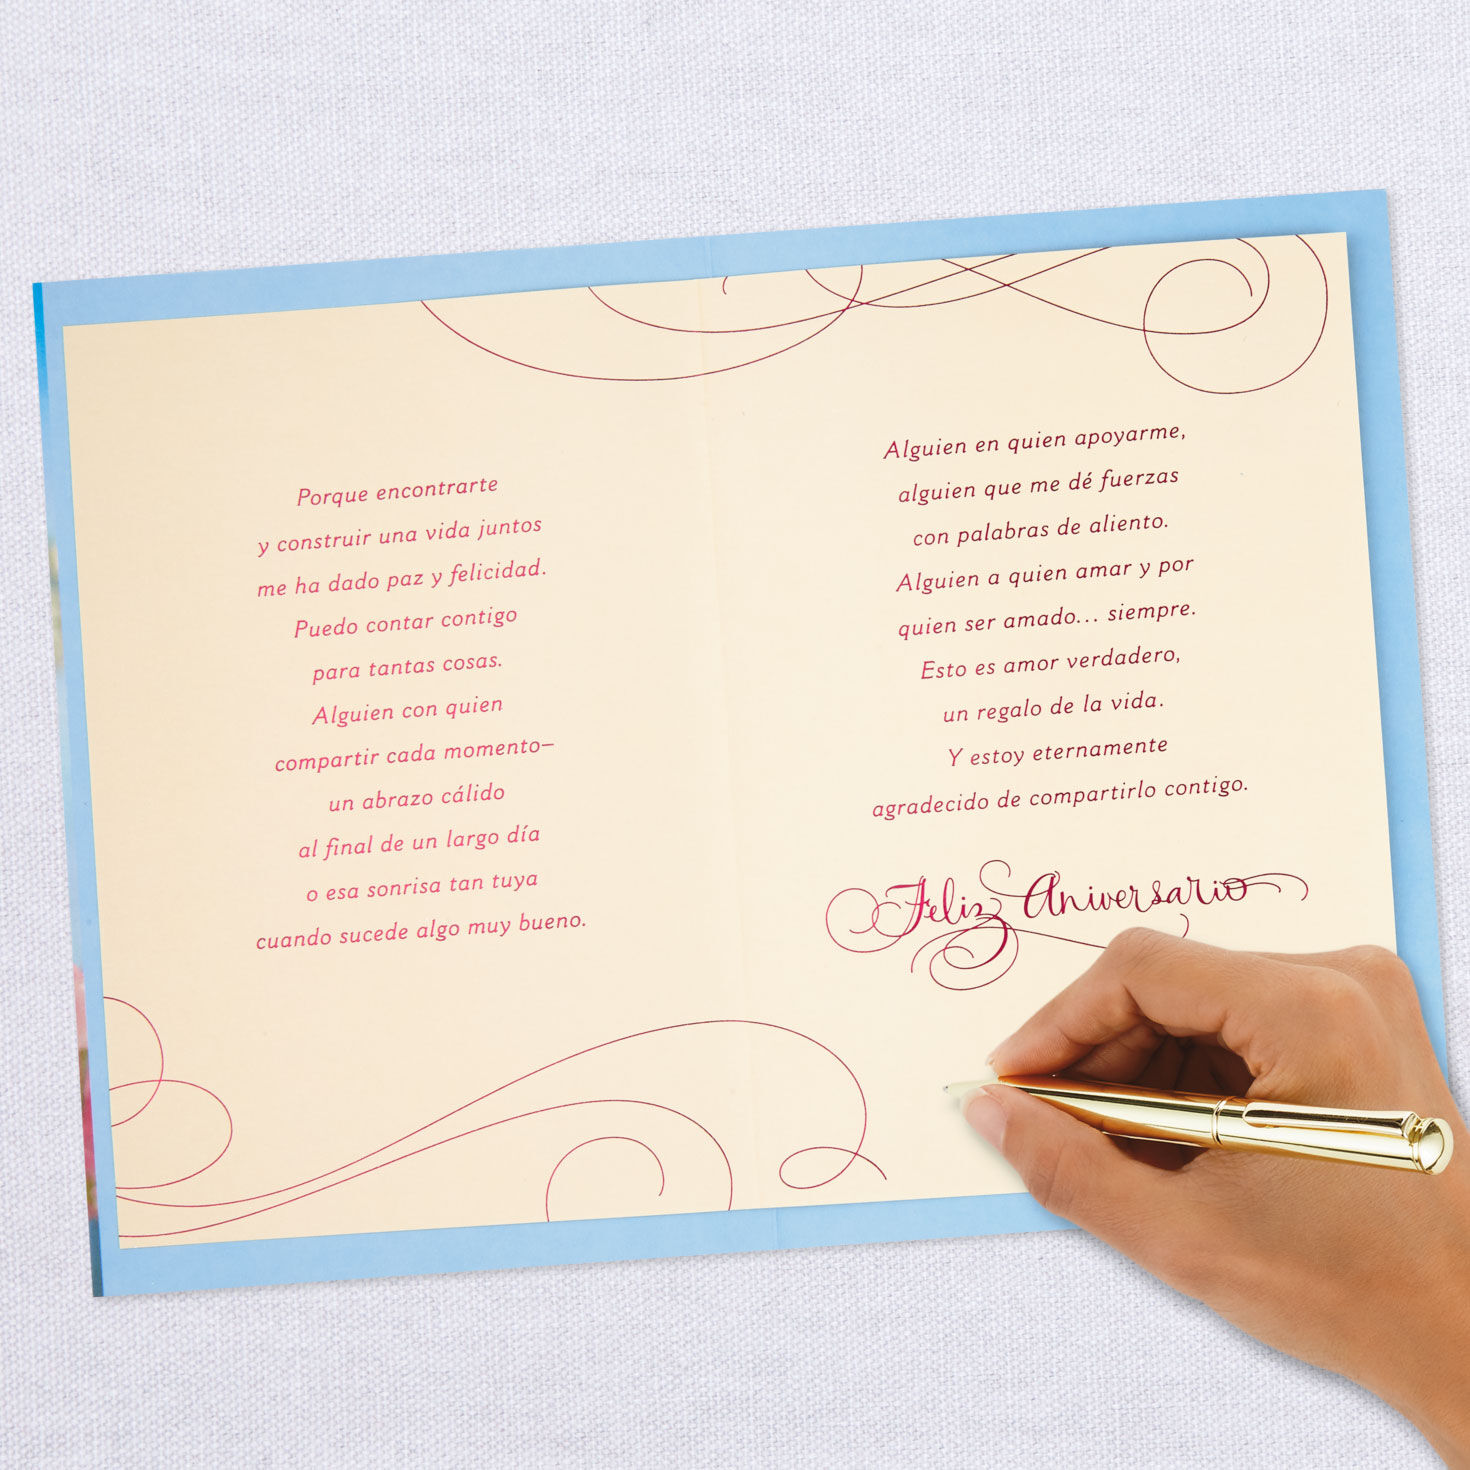 Porque encontrarte
y construir una vida juntos
me ha dado paz y felicidad.
Puedo contar contigo
para tantas cosas.
Alguien con quien
compartir cada momento–
un abrazo cálido
al final de un largo día
o esa sonrisa tan tuya
cuando sucede algo muy bueno.
Alguien en quien apoyarme,
alguien que me dé fuerzas
con palabras de aliento.
Alguien a quien amar y por
quien ser amado... siempre.
Esto es amor verdadero,
un regalo de la vida.
Y estoy eternamente
agradecido de compartirlo contigo.
Feliz Aniversario